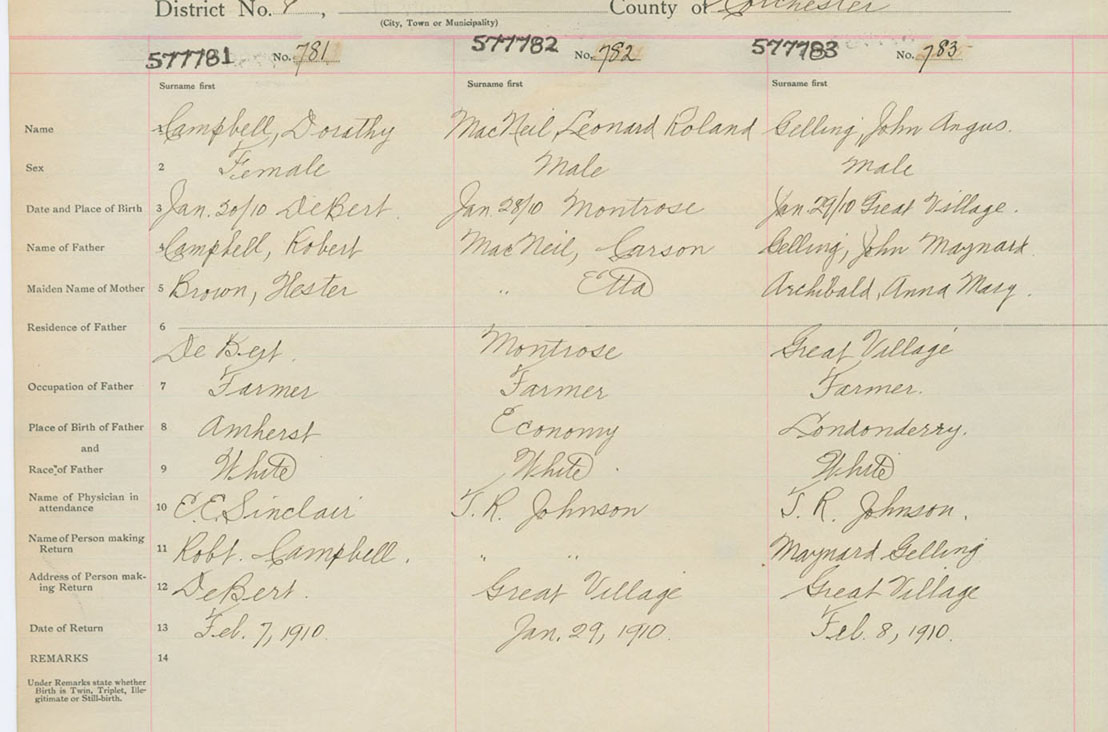 District No. 8, County of Colchester
(City, Town or Municipality)
577781 No. 781 577782 No. 782 577783 No. 783
Surname first Surname first Surname first
Name 1 Campbell, Dorathy MacNeil, Leonard Roland Gelling, John Angus.
Sex 2 Female Male Male
Date and Place of Birth 3 Jan. 30/10 DeBert. Jan. 28/10 Montrose Jan. 29/10 Great Village.
Name of Father 4 Campbell, Robert MacNeil, Carson Gelling, John Maynard
Maiden Name of Mother 5 Brown, Hester " Etta Archibald, Anna Mary.
Residence of Father 6
De Bert. Montrose Great Village
Occupation of Father 7 Farmer Farmer Farmer.
Place of Birth of Father 8 Amherst Economy Londonderry.
and
Race of Father 9 White White White
Name of Physician in
attendance 10 E.E. Sinclair T. R. Johnson T. R. Johnson.
Name of Person making
Return 11 Robt. Campbell. " " Maynard Gelling
Address of Person mak-
ing Return 12 DeBert. Great Village Great Village
Date of Return 13 Feb. 7, 1910. Jan. 29, 1910. Feb. 8, 1910.
REMARKS 14
Under Remarks state whether
Birth is Twin, Triplet, Ille-
gitimate or Still-birth.